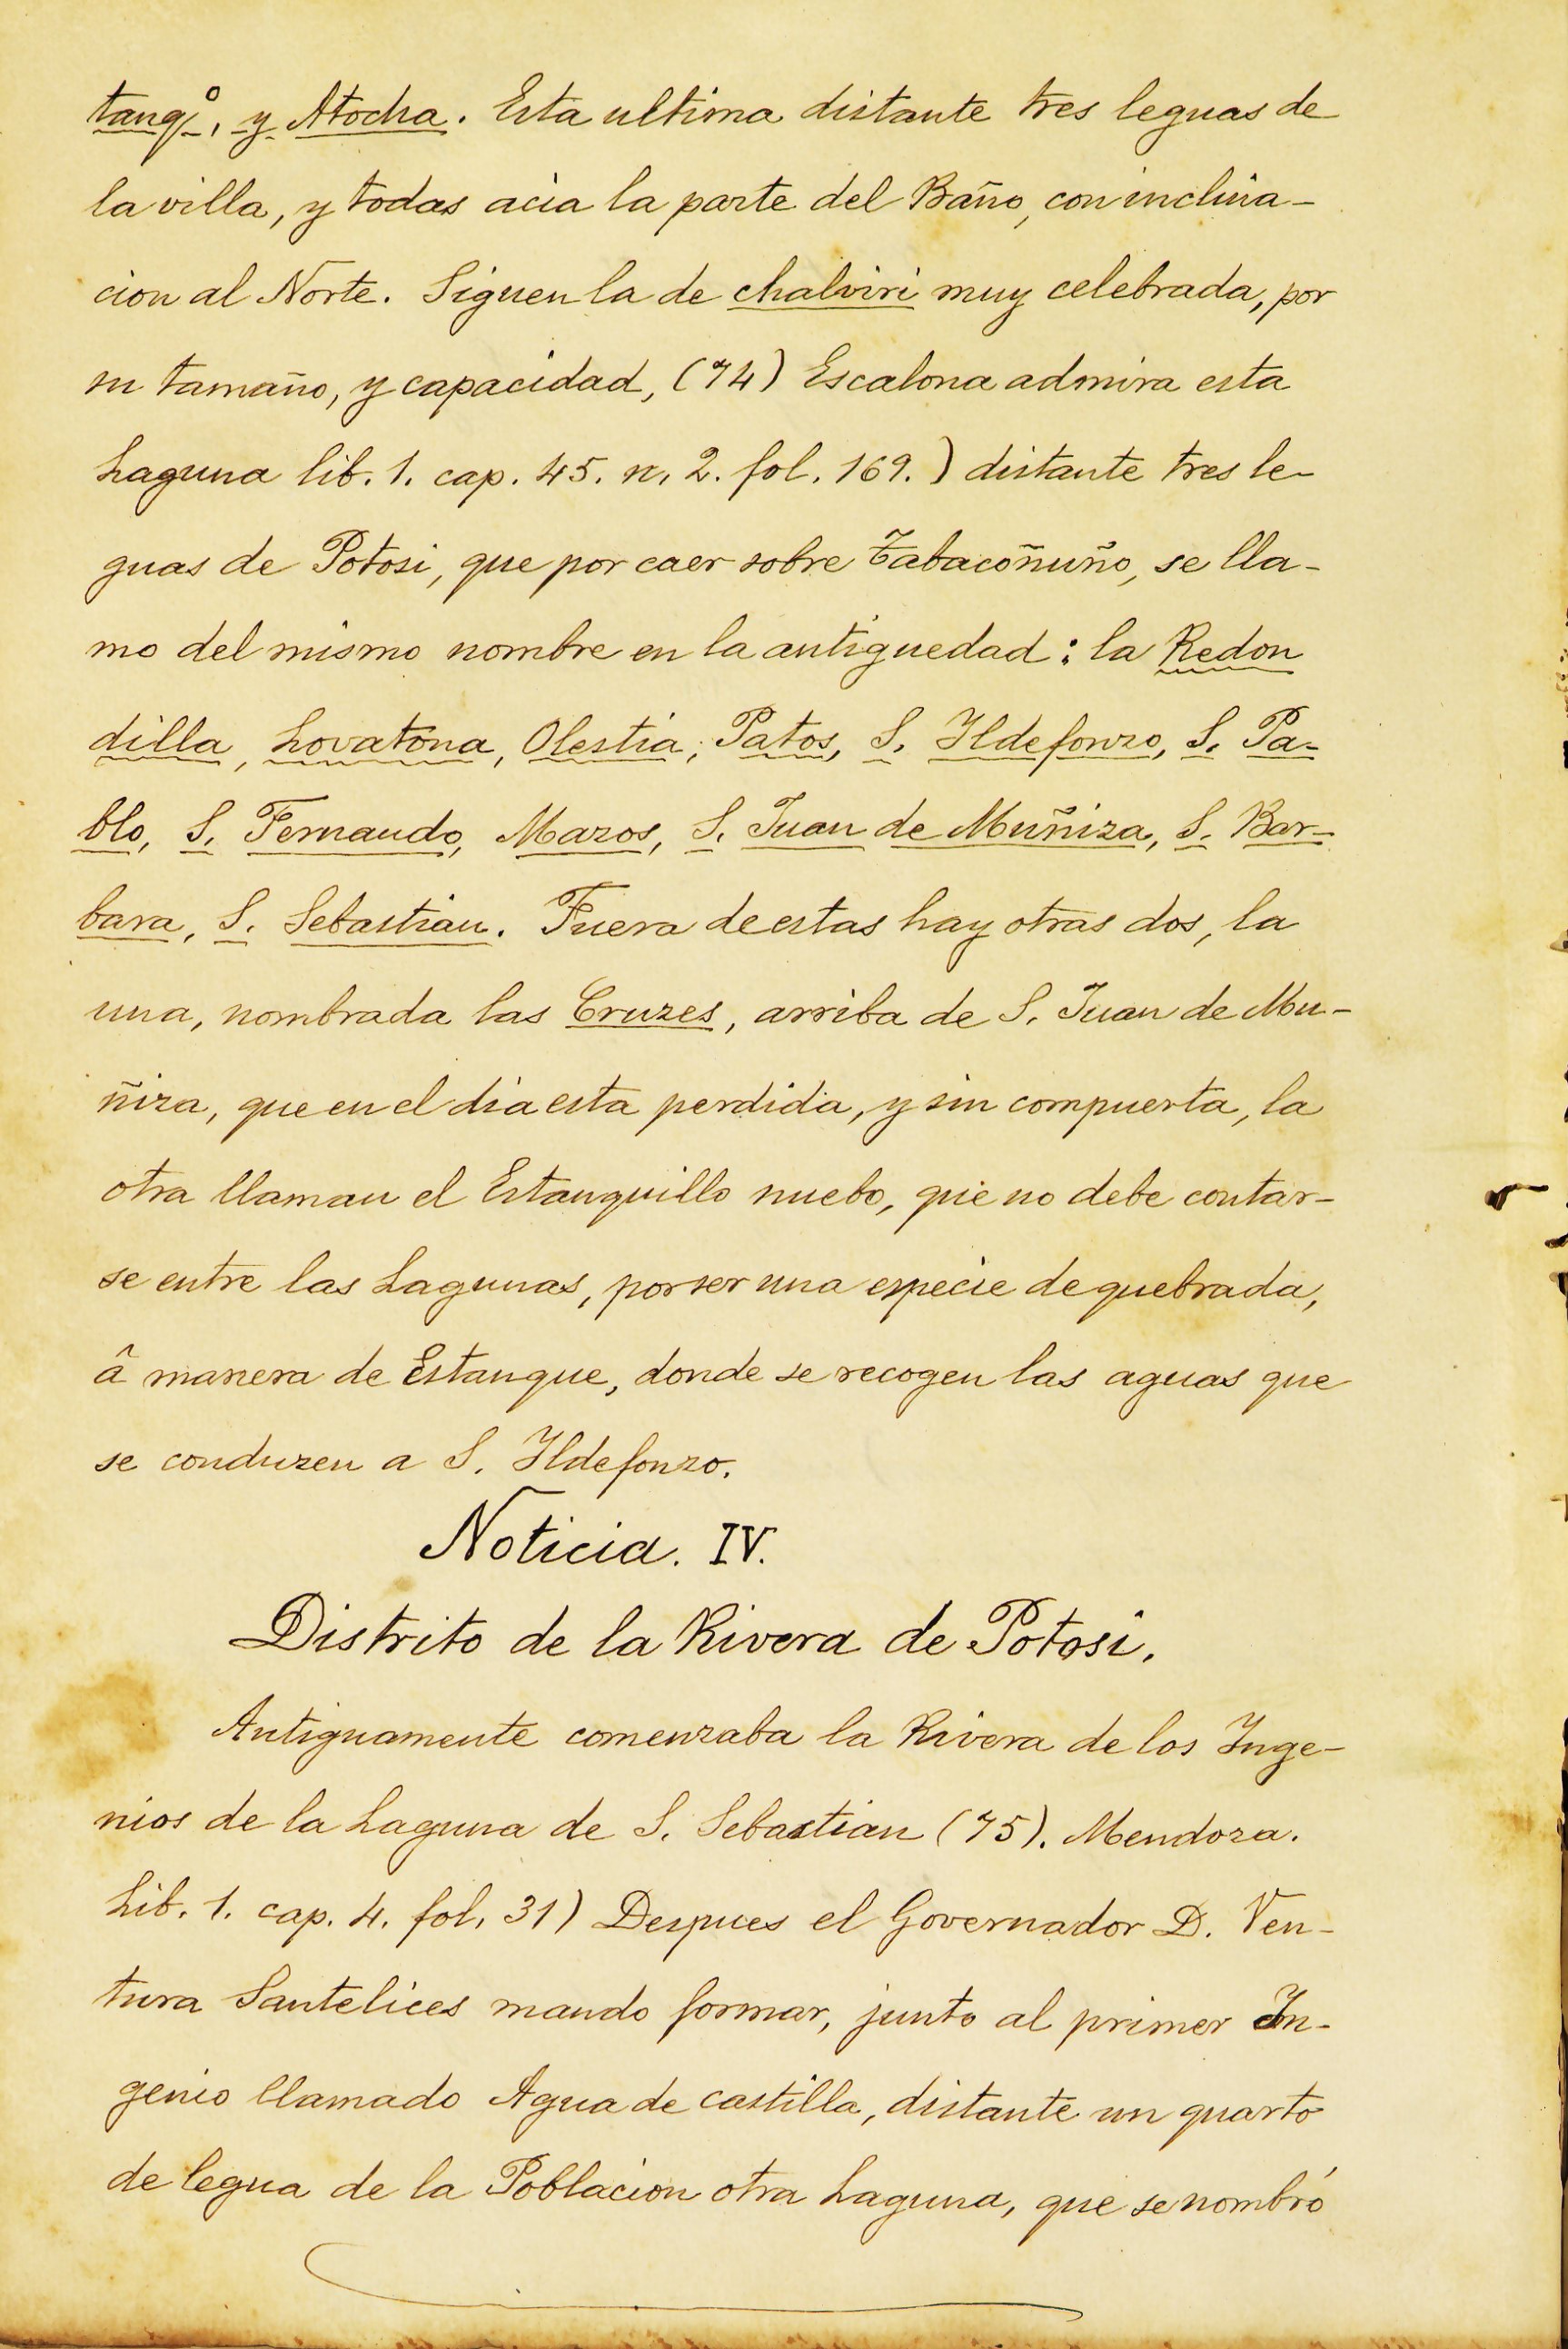 tanqº, y Atocha. Esta ultima distante tres leguas de
la villa, y todas acia la parte del Baño, con inclina-
cion al Norte. Siguen la de chalviri muy celebrada, por
su tamaño, y capacidad, (74) Escalona admira esta
Laguna lib. 1. cap. 45. n. 2. fol. 169.) distante tres le-
guas de Potosi, que por caer sobre Tabacoñuño, se lla-
mo del mismo nombre en la antiguedad: la Redon
dilla, Lovatona, Olestia, Patos, S. Ildefonzo, S. Pa-
blo, S. Fernando, Mazos, S. Juan de Muñiza, S. Bar-
bara, S. Sebastian. Fuera de estas hay otras dos, la
una, nombrada las Cruzes, arriba de S. Juan de Mu-
ñiza, que en el dia esta perdida, y sin compuerta, la
otra llaman el Estanquillo nuebo, que no debe contar-
se entre las Lagunas, por ser una especie de quebrada,
â manera de Estanque, donde se recogen las aguas que
se conduzen a S. Ildefonzo.
Noticia. IV.
Distrito de la Rivera de Potosi.
Antiguamente comenzaba la Rivera de los Inge-
nios de la Laguna de S. Sebastian (75). Mendoza.
Lib. 1. cap. 4. fol. 31) Despues el Governador D. Ven-
tura Santelices mando formar, junto al primer In-
genio llamado Agua de castilla, distante un quarto
de legua de la Poblacion otra Laguna, que se nombró